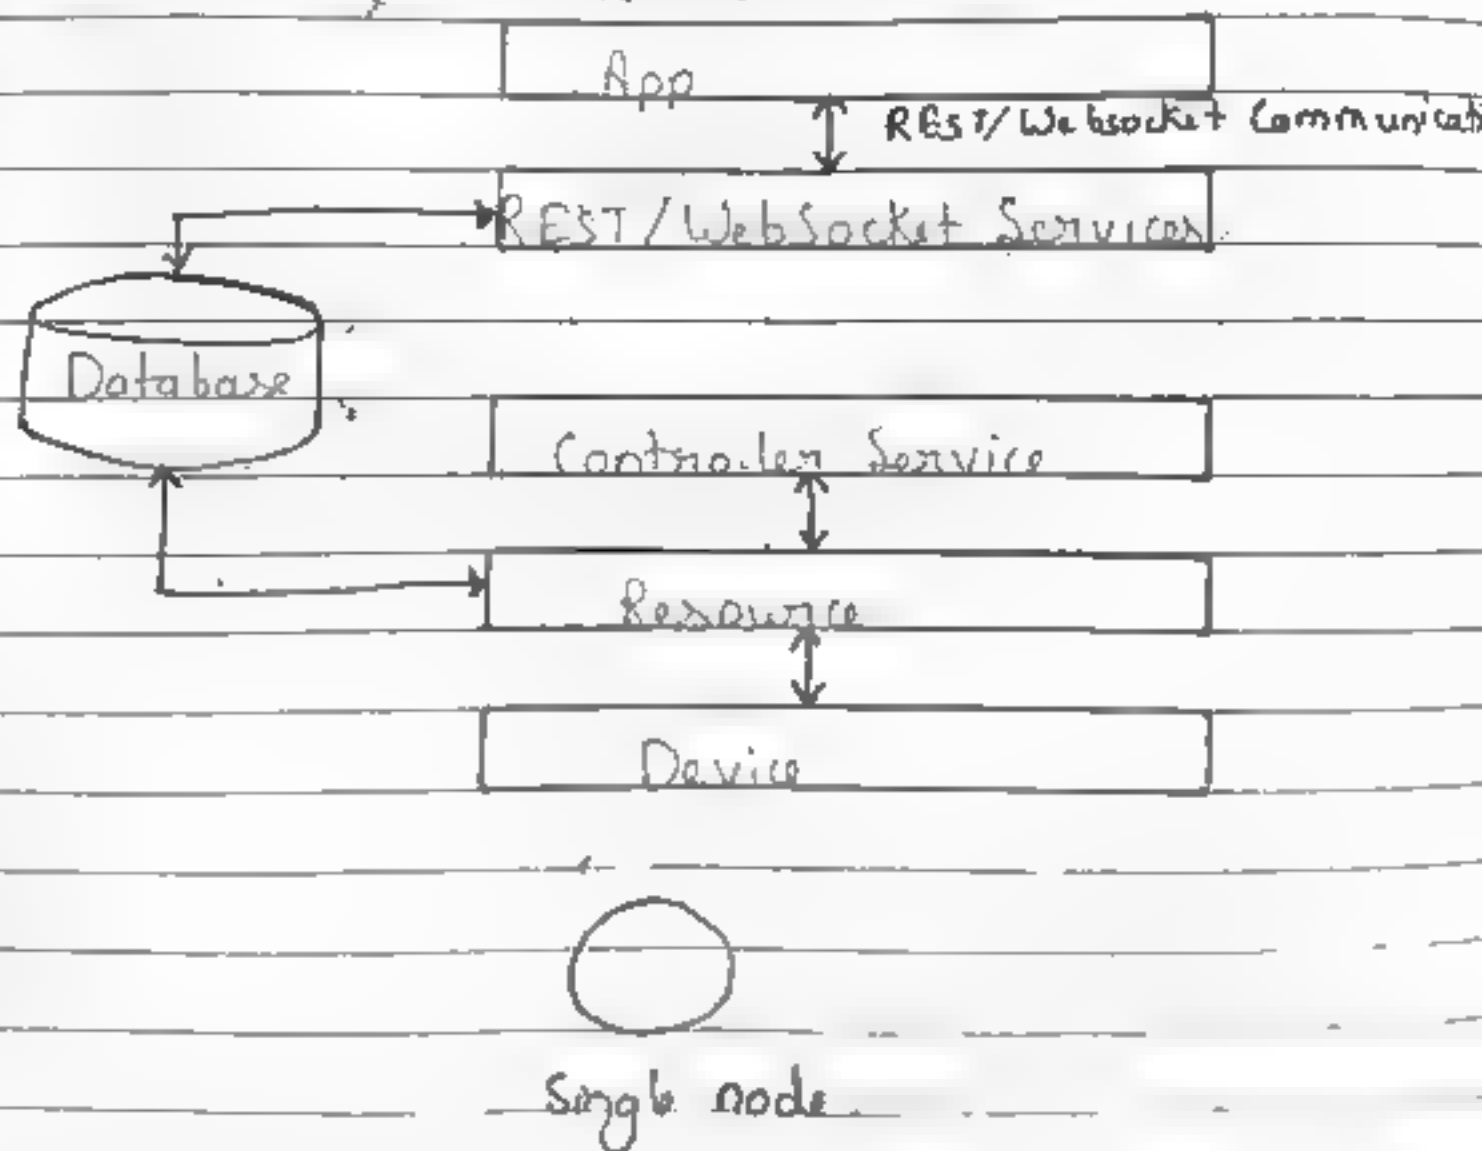 App
REST/Websocket Communicati
REST/WebSocket Services
Database
Controller Service
Resource
Device
Single node